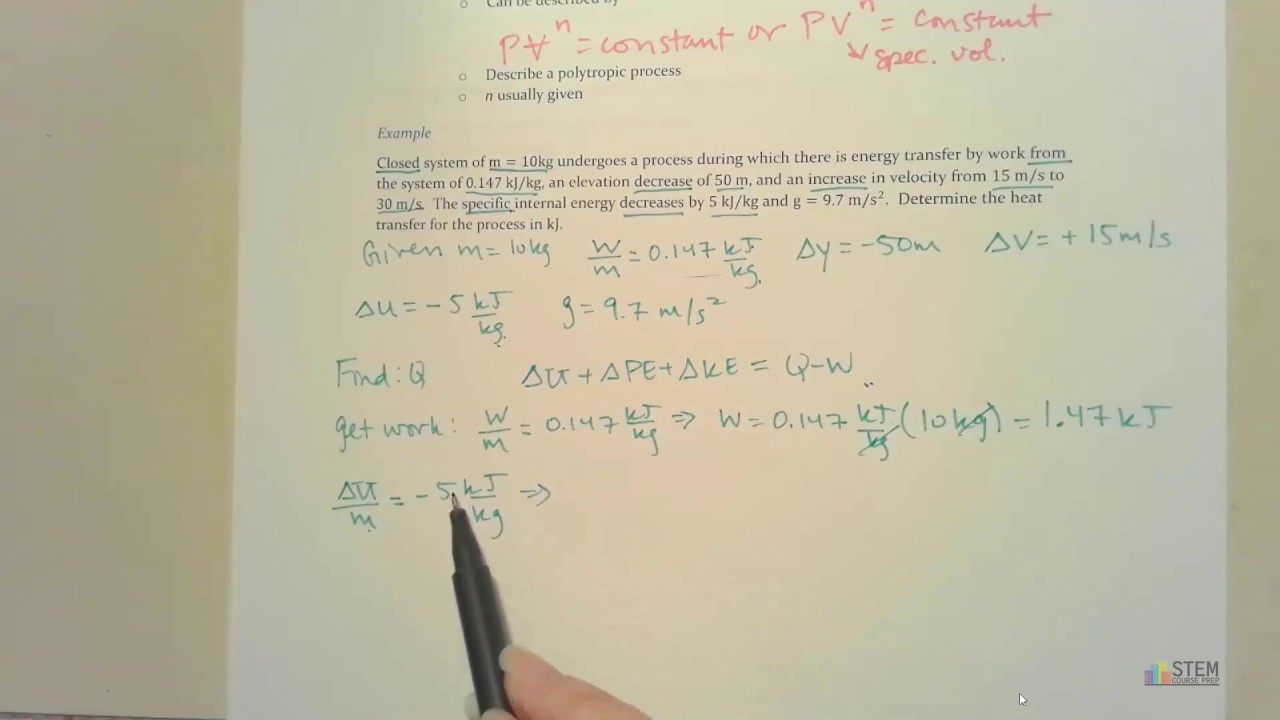 ○ Can be described by
P∀ⁿ = constant or PVⁿ = constant
↘ spec. vol.
○ Describe a polytropic process
○ n usually given
Example
Closed system of m = 10kg undergoes a process during which there is energy transfer by work from
the system of 0.147 kJ/kg, an elevation decrease of 50 m, and an increase in velocity from 15 m/s to
30 m/s. The specific internal energy decreases by 5 kJ/kg and g = 9.7 m/s². Determine the heat
transfer for the process in kJ.
Given m = 10kg W/m = 0.147 kJ/kg. Δy = -50m ΔV = +15m/s
Δu = -5 kJ/kg. g = 9.7 m/s²
Find: Q ΔU + ΔPE + ΔKE = Q-W
get work: W/m = 0.147 kJ/kg ⇒ W = 0.147 kJ/kg (10kg) = 1.47 kJ
ΔU/m = -5 kJ/kg ⇒
STEM
COURSE PREP